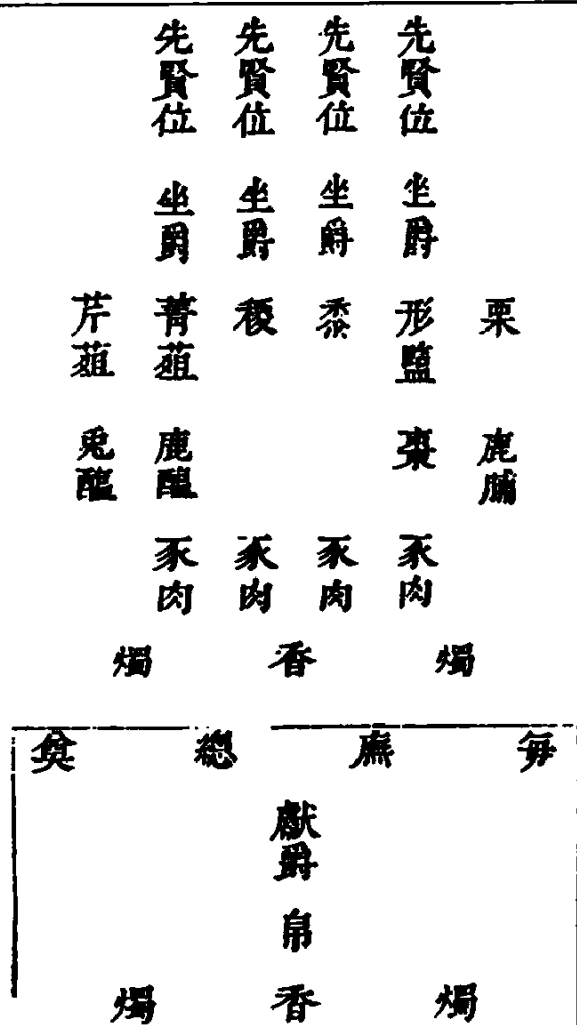 先賢位 先賢位 先賢位 先賢位
坐爵 坐爵 坐爵 坐爵
栗 形鹽 黍 稷 菁葅 芹葅
鹿脯 棗 鹿醢 兎醢
豕肉 豕肉 豕肉 豕肉
燭 香 燭
每 廡 總 奠
獻爵
帛
燭 香 燭